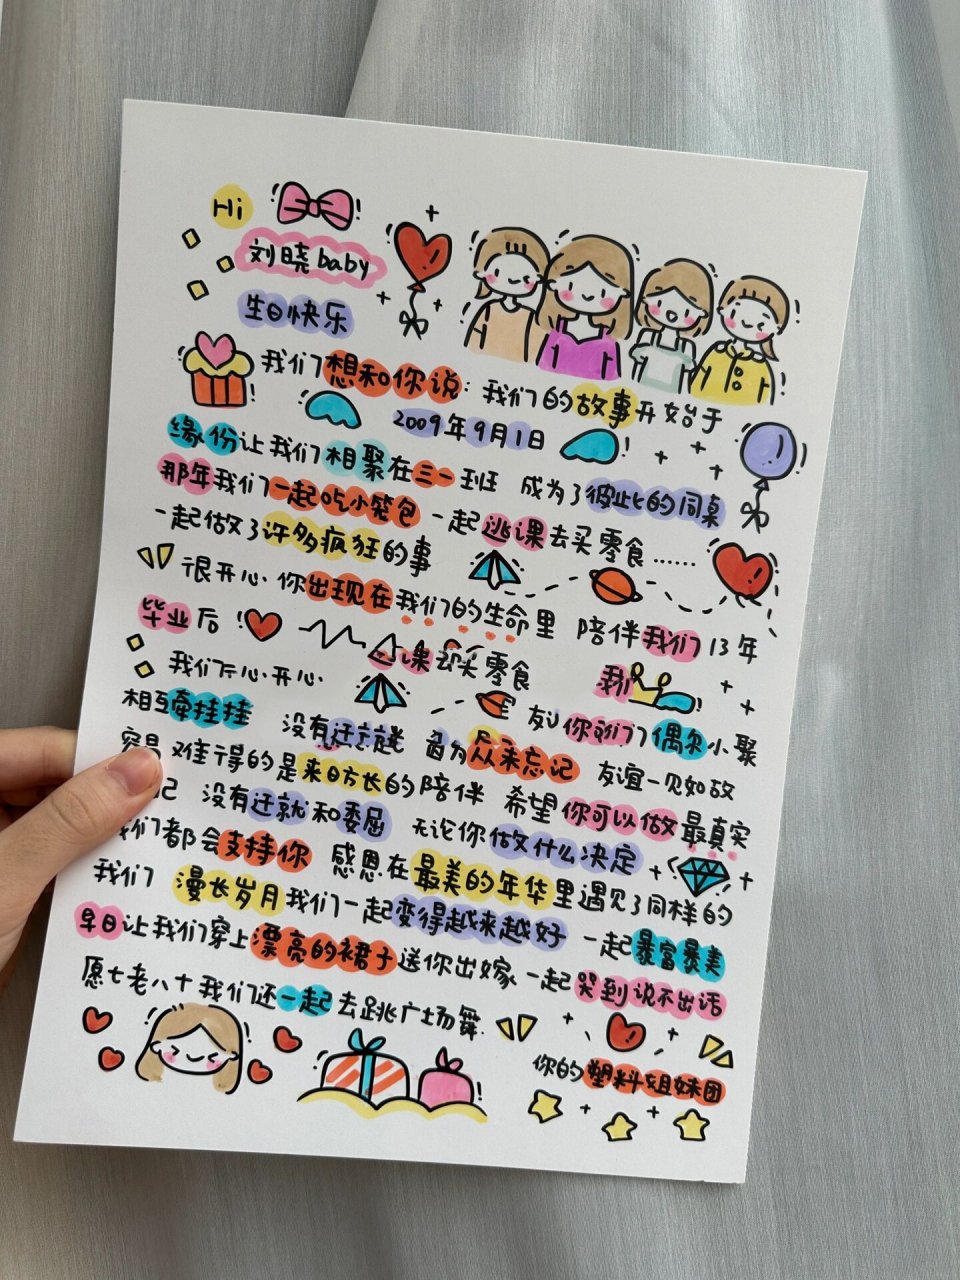 Hi
刘晓baby
生日快乐
我们想和你说：我们的故事开始于
2009年9月1日
缘份让我们相聚在三一班 成为了彼此的同桌
那年我们一起吃小笼包 一起逃课去买零食……
一起做了许多疯狂的事
很开心 你出现在我们的生命里 陪伴我们13年
毕业后
课 零食
我们 开心·开心
相互牵挂挂 没有 你 们 偶尔小聚
难于得的是来日方长的陪伴 从未忘记 友谊一见如故
记 没有迁就和委屈 希望你可以做最真实
们都会支持你 无论你做什么决定
我们 感恩在最美的年华里遇见了同样的
漫长岁月我们一起变得越来越好 一起暴富暴美
早日让我们穿上漂亮的裙子送你出嫁 一起哭到说不出话
愿七老八十我们还一起去跳广场舞
你的塑料姐妹团